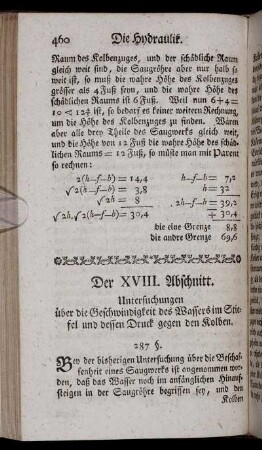 460 Die Hydraulik.
Raum des Kolbenzuges, und der schädliche Raum
gleich weit sind, die Saugröhre aber nur halb so
weit ist, so muß die wahre Höhe des Kolbenzuges
grösser als 4 Fuß seyn, und die wahre Höhe des
schädlichen Raums ist 6 Fuß. Weil nun 6+4=
10 < 12⅘ ist, so bedarf es keiner weitern Rechnung,
um die Höhe des Kolbenzuges zu finden. Wären
aber alle drey Theile des Saugwerks gleich weit,
und die Höhe von 12 Fuß die wahre Höhe des schäd-
lichen Raums=12 Fuß, so müßte man mit Parent
so rechnen:
2(h—f—b)=14,4 h—f—b= 7,2
√2(h—f—b)= 3,8 h=32
√2h= 8 2h—f—b=39,2
√2h.√2(h—f—b)=30,4 + 30,4
die eine Grenze 8,8
die andre Grenze 69,6
Der XVIII. Abschnitt.
Untersuchungen
über die Geschwindigkeit des Wassers im Stie-
fel und dessen Druck gegen den Kolben.
287 §.
Bey der bisherigen Untersuchung über die Beschaf-
fenheit eines Saugwerks ist angenommen wor-
den, daß das Wasser noch im anfänglichen Hinauf-
steigen in der Saugröhre begriffen sey, und den
Kolben